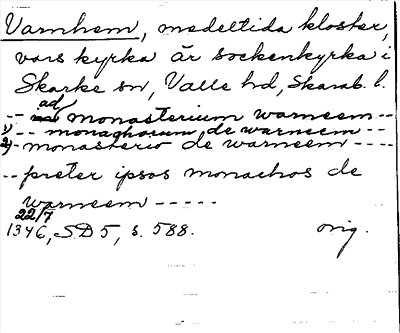 Varnhem, medeltida kloster,
vars kyrka är sockenkyrka i
Skarke sn, Valle hd, Skarab. l.
-- ad monasterium warneem --
1) -- monachorum de warneem --
2) - monasterio de warneem ----
-- preter ipsos monachos de
warneem -----
22/7
1346, SD 5, s. 588. orig.